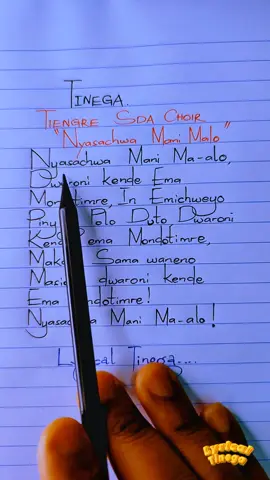 Tinega.
Tiengre Sda Choir
"Nyasachwa Mani Malo"
Nyasachwa Mani Ma-alo,
Dwaroni Kende Ema
Mondotimre, In Emichweyo
Piny Polo Duto Dwaroni
Kende ema Mondotimre,
Sama waneno
dwaroni kende
Ema Mondotimre!
Nyasachwa Mani Ma-alo!
Lyrical Tinega....
Lyrical
Tinega